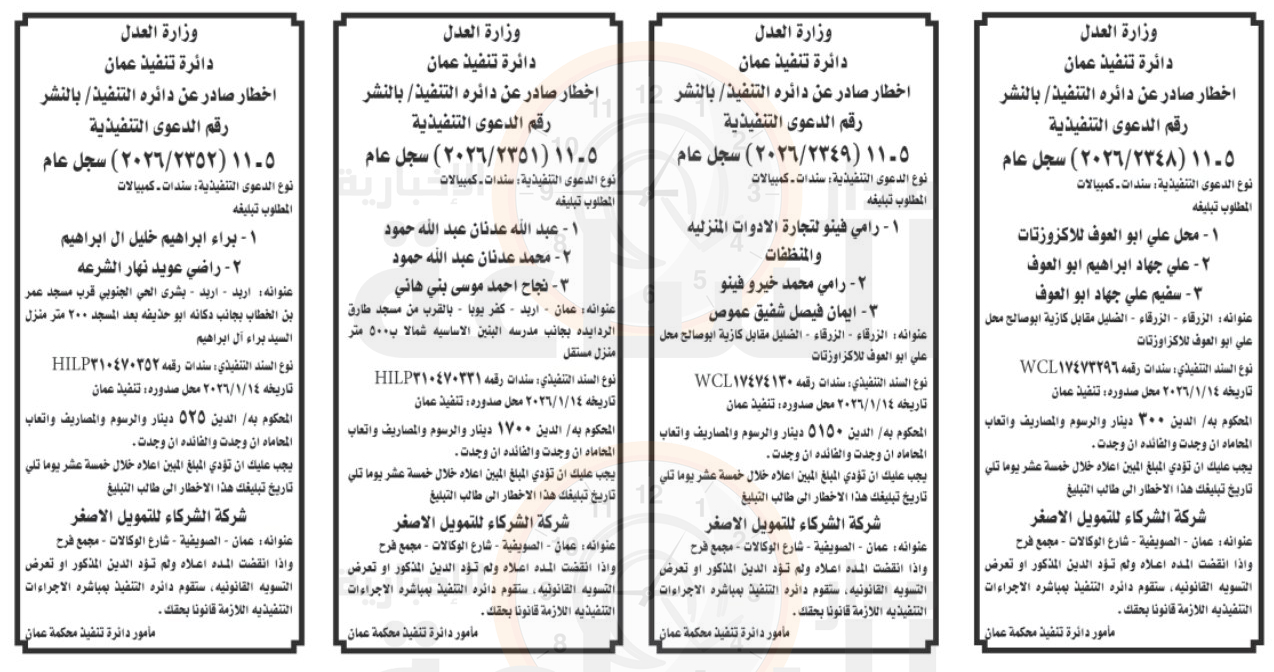 وزارة العدل
دائرة تنفيذ عمان
اخطار صادر عن دائره التنفيذ/ بالنشر
رقم الدعوى التنفيذية
١١-٥ (٢٠٢٦/٢٣٤٨) سجل عام
نوع الدعوى التنفيذية: سندات - كمبيالات
المطلوب تبليغه
١- محل علي ابو العوف للاكزوزتات
٢- علي جهاد ابراهيم ابو العوف
٣- سفيم علي جهاد ابو العوف
عنوانه: الزرقاء - الزرقاء - الضليل مقابل كازية ابوصالح محل
علي ابو العوف للاكزاوزتات
نوع السند التنفيذي: سندات رقمه WCL١٧٤٧٣٢٩٦
تاريخه ٢٠٢٦/١/١٤ محل صدوره: تنفيذ عمان
المحكوم به/ الدين ٣٠٠ دينار والرسوم والمصاريف واتعاب
المحاماه ان وجدت والفائده ان وجدت.
يجب عليك ان تؤدي المبلغ المبين اعلاه خلال خمسة عشر يوما تلي
تاريخ تبليغك هذا الاخطار الى طالب التبليغ
شركة الشركاء للتمويل الاصغر
عنوانه: عمان - الصويفية - شارع الوكالات - مجمع فرح
واذا انقضت المده اعلاه ولم تؤد الدين المذكور او تعرض
التسويه القانونيه، ستقوم دائره التنفيذ بمباشره الاجراءات
التنفيذيه اللازمة قانونا بحقك.
مأمور دائرة تنفيذ محكمة عمان
وزارة العدل
دائرة تنفيذ عمان
اخطار صادر عن دائره التنفيذ/ بالنشر
رقم الدعوى التنفيذية
١١-٥ (٢٠٢٦/٢٣٤٩) سجل عام
نوع الدعوى التنفيذية: سندات - كمبيالات
المطلوب تبليغه
١- رامي فينو لتجارة الادوات المنزليه
والمنظفات
٢- رامي محمد خيرو فينو
٣- ايمان فيصل شفيق عموص
عنوانه: الزرقاء - الزرقاء - الضليل مقابل كازية ابوصالح محل
علي ابو العوف للاكزاوزتات
نوع السند التنفيذي: سندات رقمه WCL١٧٤٧٤١٣٠
تاريخه ٢٠٢٦/١/١٤ محل صدوره: تنفيذ عمان
المحكوم به/ الدين ٥١٥٠ دينار والرسوم والمصاريف واتعاب
المحاماه ان وجدت والفائده ان وجدت.
يجب عليك ان تؤدي المبلغ المبين اعلاه خلال خمسة عشر يوما تلي
تاريخ تبليغك هذا الاخطار الى طالب التبليغ
شركة الشركاء للتمويل الاصغر
عنوانه: عمان - الصويفية - شارع الوكالات - مجمع فرح
واذا انقضت المده اعلاه ولم تؤد الدين المذكور او تعرض
التسويه القانونيه، ستقوم دائره التنفيذ بمباشره الاجراءات
التنفيذيه اللازمة قانونا بحقك.
مأمور دائرة تنفيذ محكمة عمان
وزارة العدل
دائرة تنفيذ عمان
اخطار صادر عن دائره التنفيذ/ بالنشر
رقم الدعوى التنفيذية
١١-٥ (٢٠٢٦/٢٣٥١) سجل عام
نوع الدعوى التنفيذية: سندات - كمبيالات
المطلوب تبليغه
١- عبد الله عدنان عبد الله حمود
٢- محمد عدنان عبد الله حمود
٣- نجاح احمد موسى بني هاني
عنوانه: عمان - اربد - كفر يوبا - بالقرب من مسجد طارق
الردايده بجانب مدرسه البنين الاساسيه شمالا ب٥٠٠ متر
منزل مستقل
نوع السند التنفيذي: سندات رقمه HILP٣١٠٤٧٠٣٣١
تاريخه ٢٠٢٦/١/١٤ محل صدوره: تنفيذ عمان
المحكوم به/ الدين ١٧٠٠ دينار والرسوم والمصاريف واتعاب
المحاماه ان وجدت والفائده ان وجدت.
يجب عليك ان تؤدي المبلغ المبين اعلاه خلال خمسة عشر يوما تلي
تاريخ تبليغك هذا الاخطار الى طالب التبليغ
شركة الشركاء للتمويل الاصغر
عنوانه: عمان - الصويفية - شارع الوكالات - مجمع فرح
واذا انقضت المده اعلاه ولم تؤد الدين المذكور او تعرض
التسويه القانونيه، ستقوم دائره التنفيذ بمباشره الاجراءات
التنفيذيه اللازمة قانونا بحقك.
مأمور دائرة تنفيذ محكمة عمان
وزارة العدل
دائرة تنفيذ عمان
اخطار صادر عن دائره التنفيذ/ بالنشر
رقم الدعوى التنفيذية
١١-٥ (٢٠٢٦/٢٣٥٢) سجل عام
نوع الدعوى التنفيذية: سندات - كمبيالات
المطلوب تبليغه
١- براء ابراهيم خليل ال ابراهيم
٢- راضي عويد نهار الشرعه
عنوانه: اربد - اربد - بشرى الحي الجنوبي قرب مسجد عمر
بن الخطاب بجانب دكانه ابو حذيفه بعد المسجد ٢٠٠ متر منزل
السيد براء آل ابراهيم
نوع السند التنفيذي: سندات رقمه HILP٣١٠٤٧٠٣٥٢
تاريخه ٢٠٢٦/١/١٤ محل صدوره: تنفيذ عمان
المحكوم به/ الدين ٥٢٥ دينار والرسوم والمصاريف واتعاب
المحاماه ان وجدت والفائده ان وجدت.
يجب عليك ان تؤدي المبلغ المبين اعلاه خلال خمسة عشر يوما تلي
تاريخ تبليغك هذا الاخطار الى طالب التبليغ
شركة الشركاء للتمويل الاصغر
عنوانه: عمان - الصويفية - شارع الوكالات - مجمع فرح
واذا انقضت المده اعلاه ولم تؤد الدين المذكور او تعرض
التسويه القانونيه، ستقوم دائره التنفيذ بمباشره الاجراءات
التنفيذيه اللازمة قانونا بحقك.
مأمور دائرة تنفيذ محكمة عمان